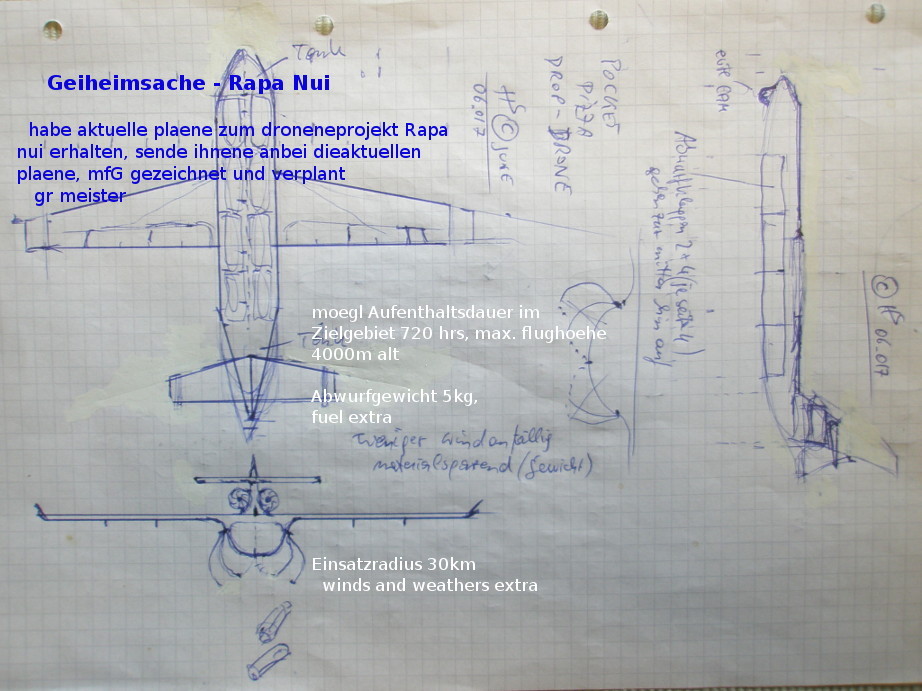 Geiheimsache - Rapa Nui
habe aktuelle plaene zum droneneprojekt Rapa
nui erhalten, sende ihnene anbei dieaktuellen
plaene, mfG gezeichnet und verplant
gr meister
Tank
POCKET
PIZZA
DROP-DRONE
06.017
CAM
Abwurfklappen 2x4 (je seite 4)
gehen zur mitte hin auf
© HS 06.017
moegl Aufenthaltsdauer im
Zielgebiet 720 hrs, max. flughoehe
4000m alt
Tank
Abwurfgewicht 5kg,
fuel extra
weniger windanfällig
materialsparend (gewicht)
Einsatzradius 30km
winds and weathers extra